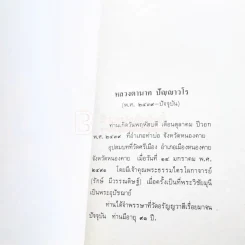 หลวงตานาค ปัญญาวโร
(พ.ศ. ๒๔๔๙-ปัจจุบัน)
ท่านเกิดวันพฤหัสบดี เดือนตุลาคม ปีวอก
พ.ศ. ๒๔๔๙ ที่อำเภอท่าบ่อ จังหวัดหนองคาย
อุปสมบทที่วัดศรีเมือง อำเภอเมืองหนองคาย
จังหวัดหนองคาย เมื่อวันที่ ๑๕ มกราคม พ.ศ.
โดยมีเจ้าคุณพระธรรมไตรโลกาจารย์
(รักษ์ มีวรรณดิษฐ์) เมื่อครั้งเป็นที่พระวิชัยมุนี
เป็นพระอุปัชฌาย์
ท่านได้จำพรรษาที่วัดอรัญญวาสีเรื่อยมาจน
ปัจจุบัน ท่านมีอายุ ๙๑ ปี.